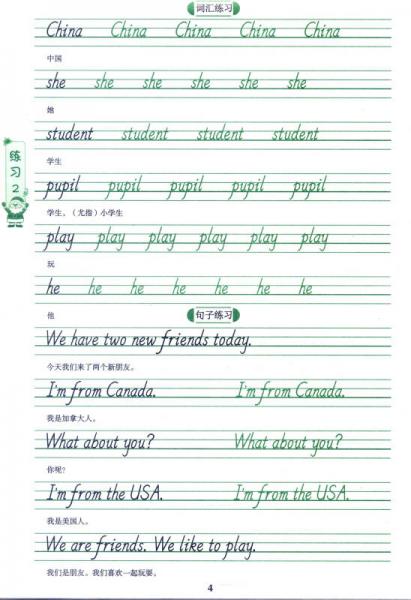 词汇练习
China China China China China
中国
she she she she she she
她
student student student student
学生
pupil pupil pupil pupil pupil
学生，（尤指）小学生
play play play play play play
玩
he he he he he he he
他
练习2
句子练习
We have two new friends today.
今天我们来了两个新朋友。
I'm from Canada. I'm from Canada.
我是加拿大人。
What about you? What about you?
你呢？
I'm from the USA. I'm from the USA.
我是美国人。
We are friends. We like to play.
我们是朋友。我们喜欢一起玩耍。
4